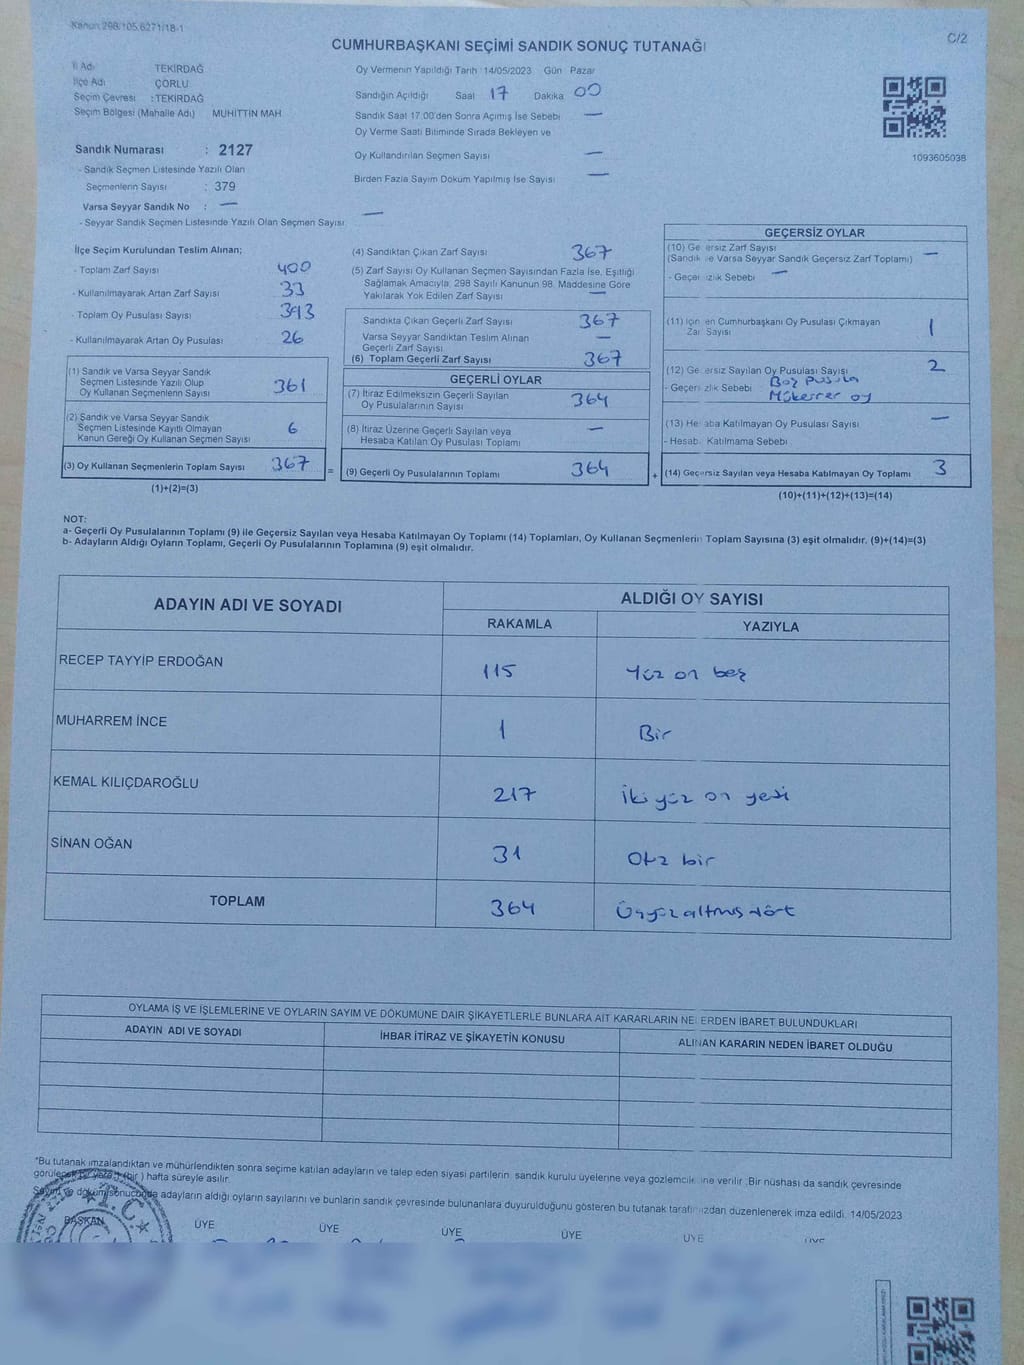 Kanun 298/105,6271/18-1
C/2
CUMHURBAŞKANI SEÇİMİ SANDIK SONUÇ TUTANAĞI
İl Adı TEKİRDAĞ
İlçe Adı ÇORLU
Seçim Çevresi : TEKİRDAĞ
Seçim Bölgesi (Mahalle Adı) MUHİTTİN MAH
Sandık Numarası : 2127
- Sandık Seçmen Listesinde Yazılı Olan
Seçmenlerin Sayısı : 379
Varsa Seyyar Sandık No : —
- Seyyar Sandık Seçmen Listesinde Yazılı Olan Seçmen Sayısı —
Oy Vermenin Yapıldığı Tarih 14/05/2023 Gün Pazar
Sandığın Açıldığı Saat 17 Dakika 00
Sandık Saat 17.00'den Sonra Açımış İse Sebebi —
Oy Verme Saati Bitiminde Sırada Bekleyen ve
Oy Kullandırılan Seçmen Sayısı —
Birden Fazla Sayım Döküm Yapılmış İse Sayısı —
1093605038
İlçe Seçim Kurulundan Teslim Alınan;
- Toplam Zarf Sayısı 400
- Kullanılmayarak Artan Zarf Sayısı 33
- Toplam Oy Pusulası Sayısı 393
- Kullanılmayarak Artan Oy Pusulası 26
(1) Sandık ve Varsa Seyyar Sandık
Seçmen Listesinde Yazılı Olup
Oy Kullanan Seçmenlerin Sayısı 361
(2) Sandık ve Varsa Seyyar Sandık
Seçmen Listesinde Kayıtlı Olmayan
Kanun Gereği Oy Kullanan Seçmen Sayısı 6
(3) Oy Kullanan Seçmenlerin Toplam Sayısı 367
(1)+(2)=(3)
=
(4) Sandıktan Çıkan Zarf Sayısı 367
(5) Zarf Sayısı Oy Kullanan Seçmen Sayısından Fazla İse, Eşitliği
Sağlamak Amacıyla, 298 Sayılı Kanunun 98. Maddesine Göre
Yakılarak Yok Edilen Zarf Sayısı —
Sandıkta Çıkan Geçerli Zarf Sayısı 367
Varsa Seyyar Sandıktan Teslim Alınan
Geçerli Zarf Sayısı —
(6) Toplam Geçerli Zarf Sayısı 367
GEÇERLİ OYLAR
(7) İtiraz Edilmeksizin Geçerli Sayılan
Oy Pusulalarının Sayısı 364
(8) İtiraz Üzerine Geçerli Sayılan veya
Hesaba Katılan Oy Pusulası Toplamı —
(9) Geçerli Oy Pusulalarının Toplamı 364
+
GEÇERSİZ OYLAR
(10) Geçersiz Zarf Sayısı
(Sandık ve Varsa Seyyar Sandık Geçersiz Zarf Toplamı) —
- Geçersizlik Sebebi —
(11) İçinden Cumhurbaşkanı Oy Pusulası Çıkmayan
Zarf Sayısı 1
(12) Geçersiz Sayılan Oy Pusulası Sayısı 2
- Geçersizlik Sebebi Boş pusula
Mükerrer oy
(13) Hesaba Katılmayan Oy Pusulası Sayısı —
- Hesaba Katılmama Sebebi
(14) Geçersiz Sayılan veya Hesaba Katılmayan Oy Toplamı 3
(10)+(11)+(12)+(13)=(14)
NOT:
a- Geçerli Oy Pusulalarının Toplamı (9) ile Geçersiz Sayılan veya Hesaba Katılmayan Oy Toplamı (14) Toplamları, Oy Kullanan Seçmenlerin Toplam Sayısına (3) eşit olmalıdır. (9)+(14)=(3)
b- Adayların Aldığı Oyların Toplamı, Geçerli Oy Pusulalarının Toplamına (9) eşit olmalıdır.
ADAYIN ADI VE SOYADI ALDIĞI OY SAYISI
RAKAMLA YAZIYLA
RECEP TAYYİP ERDOĞAN 115 Yüz on beş
MUHARREM İNCE 1 Bir
KEMAL KILIÇDAROĞLU 217 İki yüz on yedi
SİNAN OĞAN 31 Otz bir
TOPLAM 364 Üçyüzaltmışdört
OYLAMA İŞ VE İŞLEMLERİNE VE OYLARIN SAYIM VE DÖKÜMÜNE DAİR ŞİKAYETLERLE BUNLARA AİT KARARLARIN NELERDEN İBARET BULUNDUKLARI
ADAYIN ADI VE SOYADI İHBAR İTİRAZ VE ŞİKAYETİN KONUSU ALINAN KARARIN NEDEN İBARET OLDUĞU
*Bu tutanak imzalandıktan ve mühürlendikten sonra seçime katılan adayların ve talep eden siyasi partilerin sandık kurulu üyelerine veya gözlemcilerine verilir. Bir nüshası da sandık çevresinde
görülecek bir yere 1 (bir) hafta süreyle asılır.
Sayım ve döküm sonucunda adayların aldığı oyların sayılarını ve bunların sandık çevresinde bulunanlara duyurulduğunu gösteren bu tutanak tarafımızdan düzenlenerek imza edildi. 14/05/2023
T.C.
BAŞKAN ÜYE ÜYE ÜYE ÜYE ÜYE ÜYE